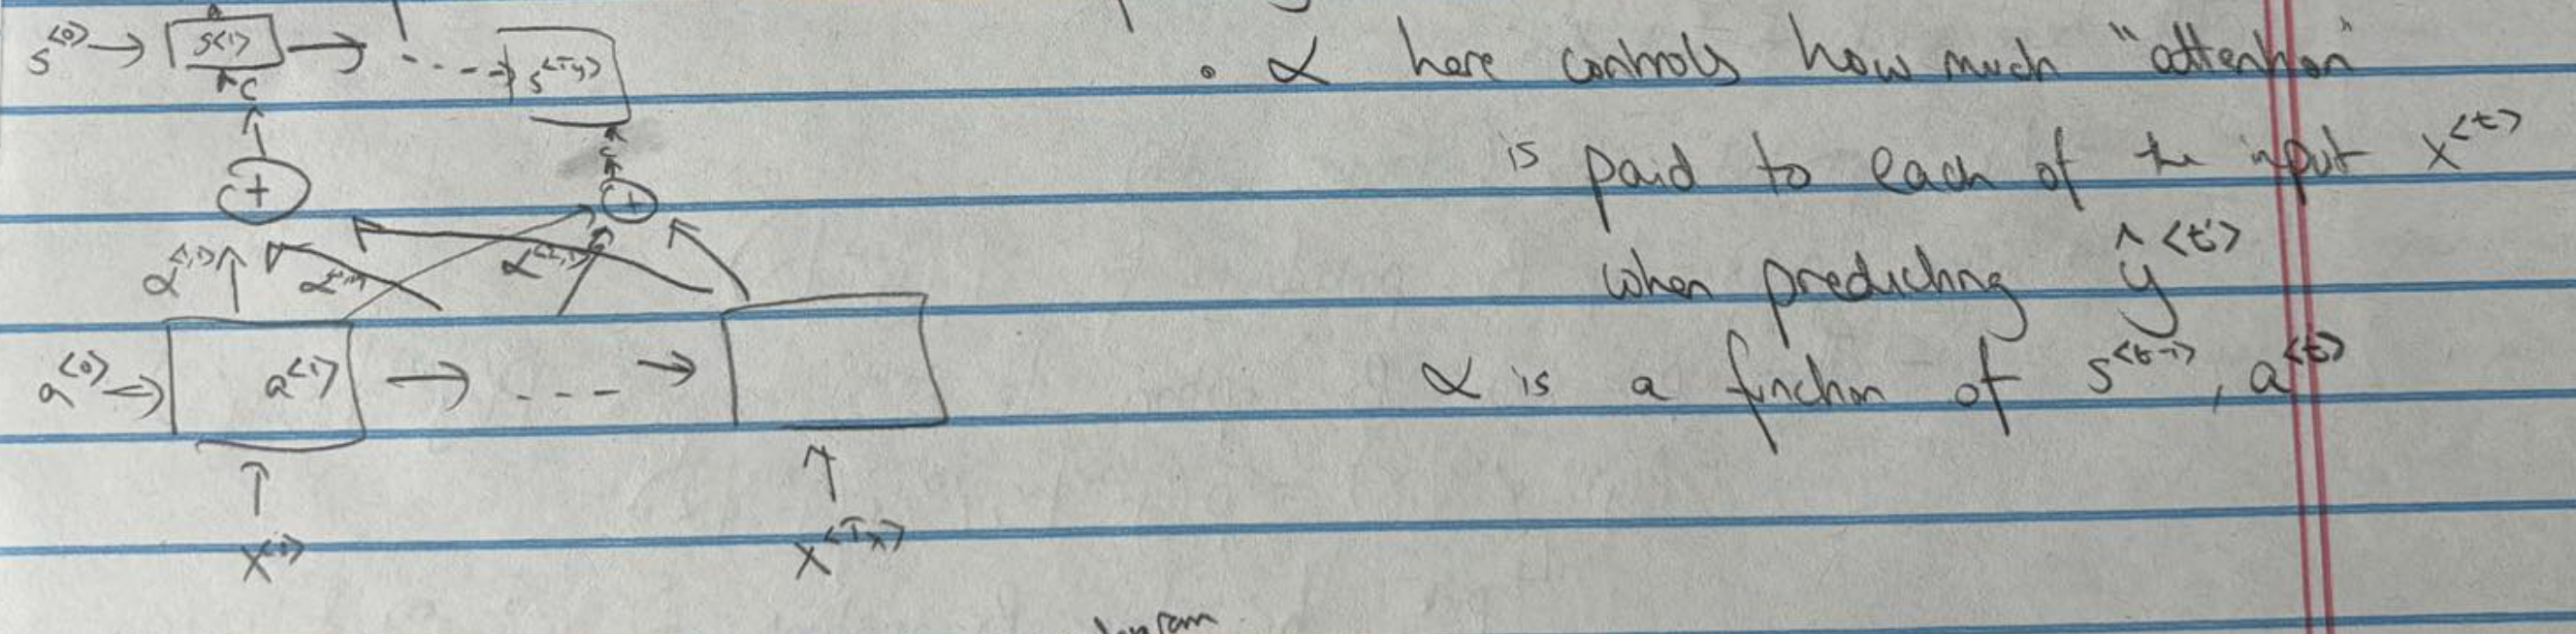 s<0> → s<1> → . . . . → s<Ty>
c c
+ +
α<1,1> α<2,1>
a<0> → a<1> → . . . →
x<1> x<Tx>
. α here controls how much "attention"
is paid to each of the input x<t>
when predicting ŷ<t'>
α is a function of s<t-1>, a<t>